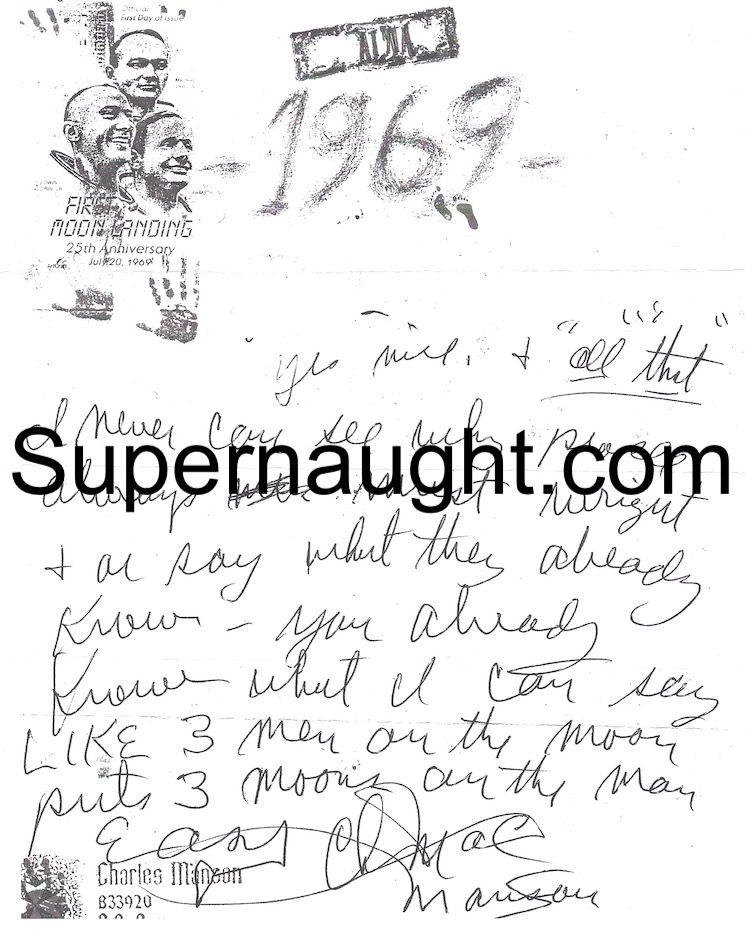 Official
First Day of Issue
ATWA
- 1969 -
FIRST
MOON LANDING
25th Anniversary
July 20, 1969
yes nice. + "all that"
I never can see why
always must
+ or say what they already
Know - you already
Know what I can say
LIKE 3 men on the moon
puts 3 moons on the man
Easy
Manson
Charles Manson
B33920
Supernaught.com